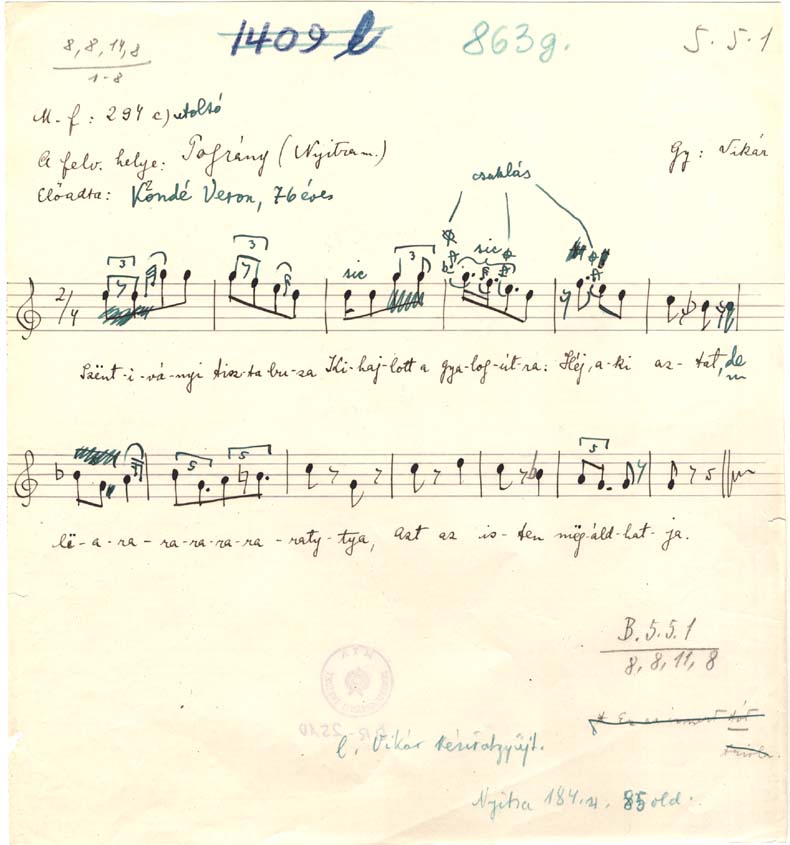 8, 8, 14, 8
1-8
1409 l
863 g.
5. 5. 1
M. f: 294 c) utolsó
A felv. helye: Pográny (Nyitra m.)
Gy: Vikár
Előadta: Kondé Veron, 76 éves
csuklás
3
3
sic
3
sic
2/4
Szënt-i-vá-nyi tisz-ta bu-za Ki-haj-lott a gya-log-út-ra: Héj, a-ki az-tat, de
5
5
5
lë-a-ra-ra-ra-ra-ra-raty-tya, azt az is-ten mëg-áld-hat-ja.
B. 5. 5. 1
8, 8, 11, 8
l. Vikár
Nyitra 184. sz. 85 old.